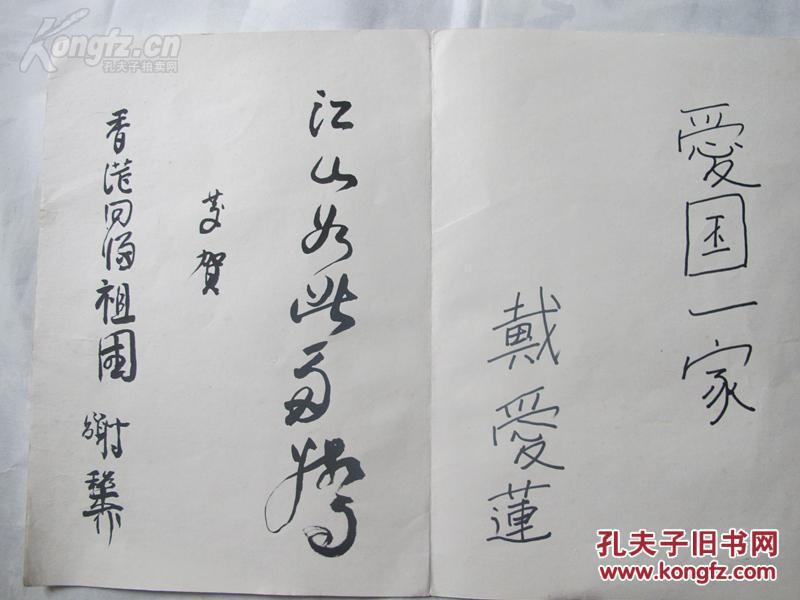 Kongfz.cn
孔夫子拍卖网
愛国一家
戴愛蓮
江山如此多嬌
慶賀
香港回归祖国
谢
孔夫子旧书网
www.kongfz.com